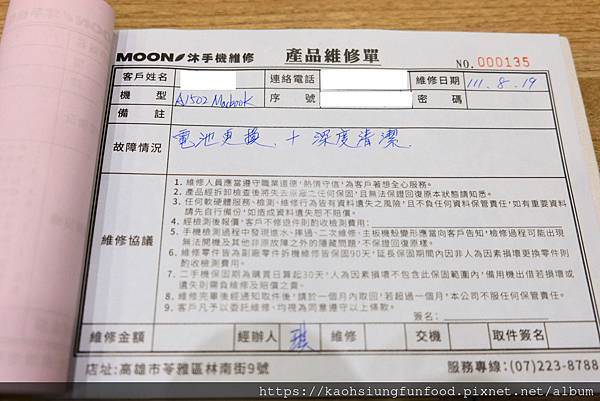 MOON 沐手機維修 產品維修單 NO. 000135
客戶姓名 連絡電話 維修日期 111.8.19
機型 A1502 Macbook 序號 密碼
備註
故障情況 電池更換. + 深度清潔.
維修協議
1. 維修人員應當遵守職業道德,熱情守信,為客戶著想全心服務。
2. 產品經拆卸檢查後將失去原廠之任何保固,且無法保證回復原本狀態請知悉。
3. 任何軟硬體服務、檢測、維修行為皆有資料遺失之風險,且不負任何資料保管責任,如有重要資料
請先自行備份,如造成資料遺失恕不賠償。
4. 經檢測後報價,客戶不修退件則酌收檢測費用:
5. 手機檢測過程中發現進水、摔過、二次維修、主板機殼變形應當向客戶告知,檢修過程可能出現
無法開機及其他非原故障之外的隱藏問題,不保證回復原樣。
6. 維修零件皆為副廠零件拆機維修皆保固90天,延長保固期間內因非人為因素損壞更換零件則
酌收檢測費用。
7. 二手機保固期為購買日算起30天,人為因素損壞不包含此保固範圍內,備用機出借若損壞或
遺失則需負維修及賠償之責。
8. 維修完畢後經通知取件後,請於一個月內取回,若超過一個月,本公司不服任何保管責任。
9. 客戶凡予以委託維修、均視為同意遵守以上條款。
簽名:
維修金額 經辦人 琪 維修 交機 取件簽名
店址:高雄市苓雅區林南街9號 服務專線:(07)223-8788
https://kaohsiungfunfood.pixnet.net/album